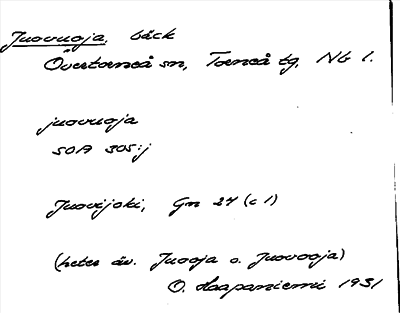 Juovuoja, bäck
Övertorneå sn, Torneå tg, Nb l.
juovuoja
SOA 305:j
Juovijoki, Gn 24 (c 1)
(heter äv. Juooja o. Juovooja)
O. Haapaniemi 1931